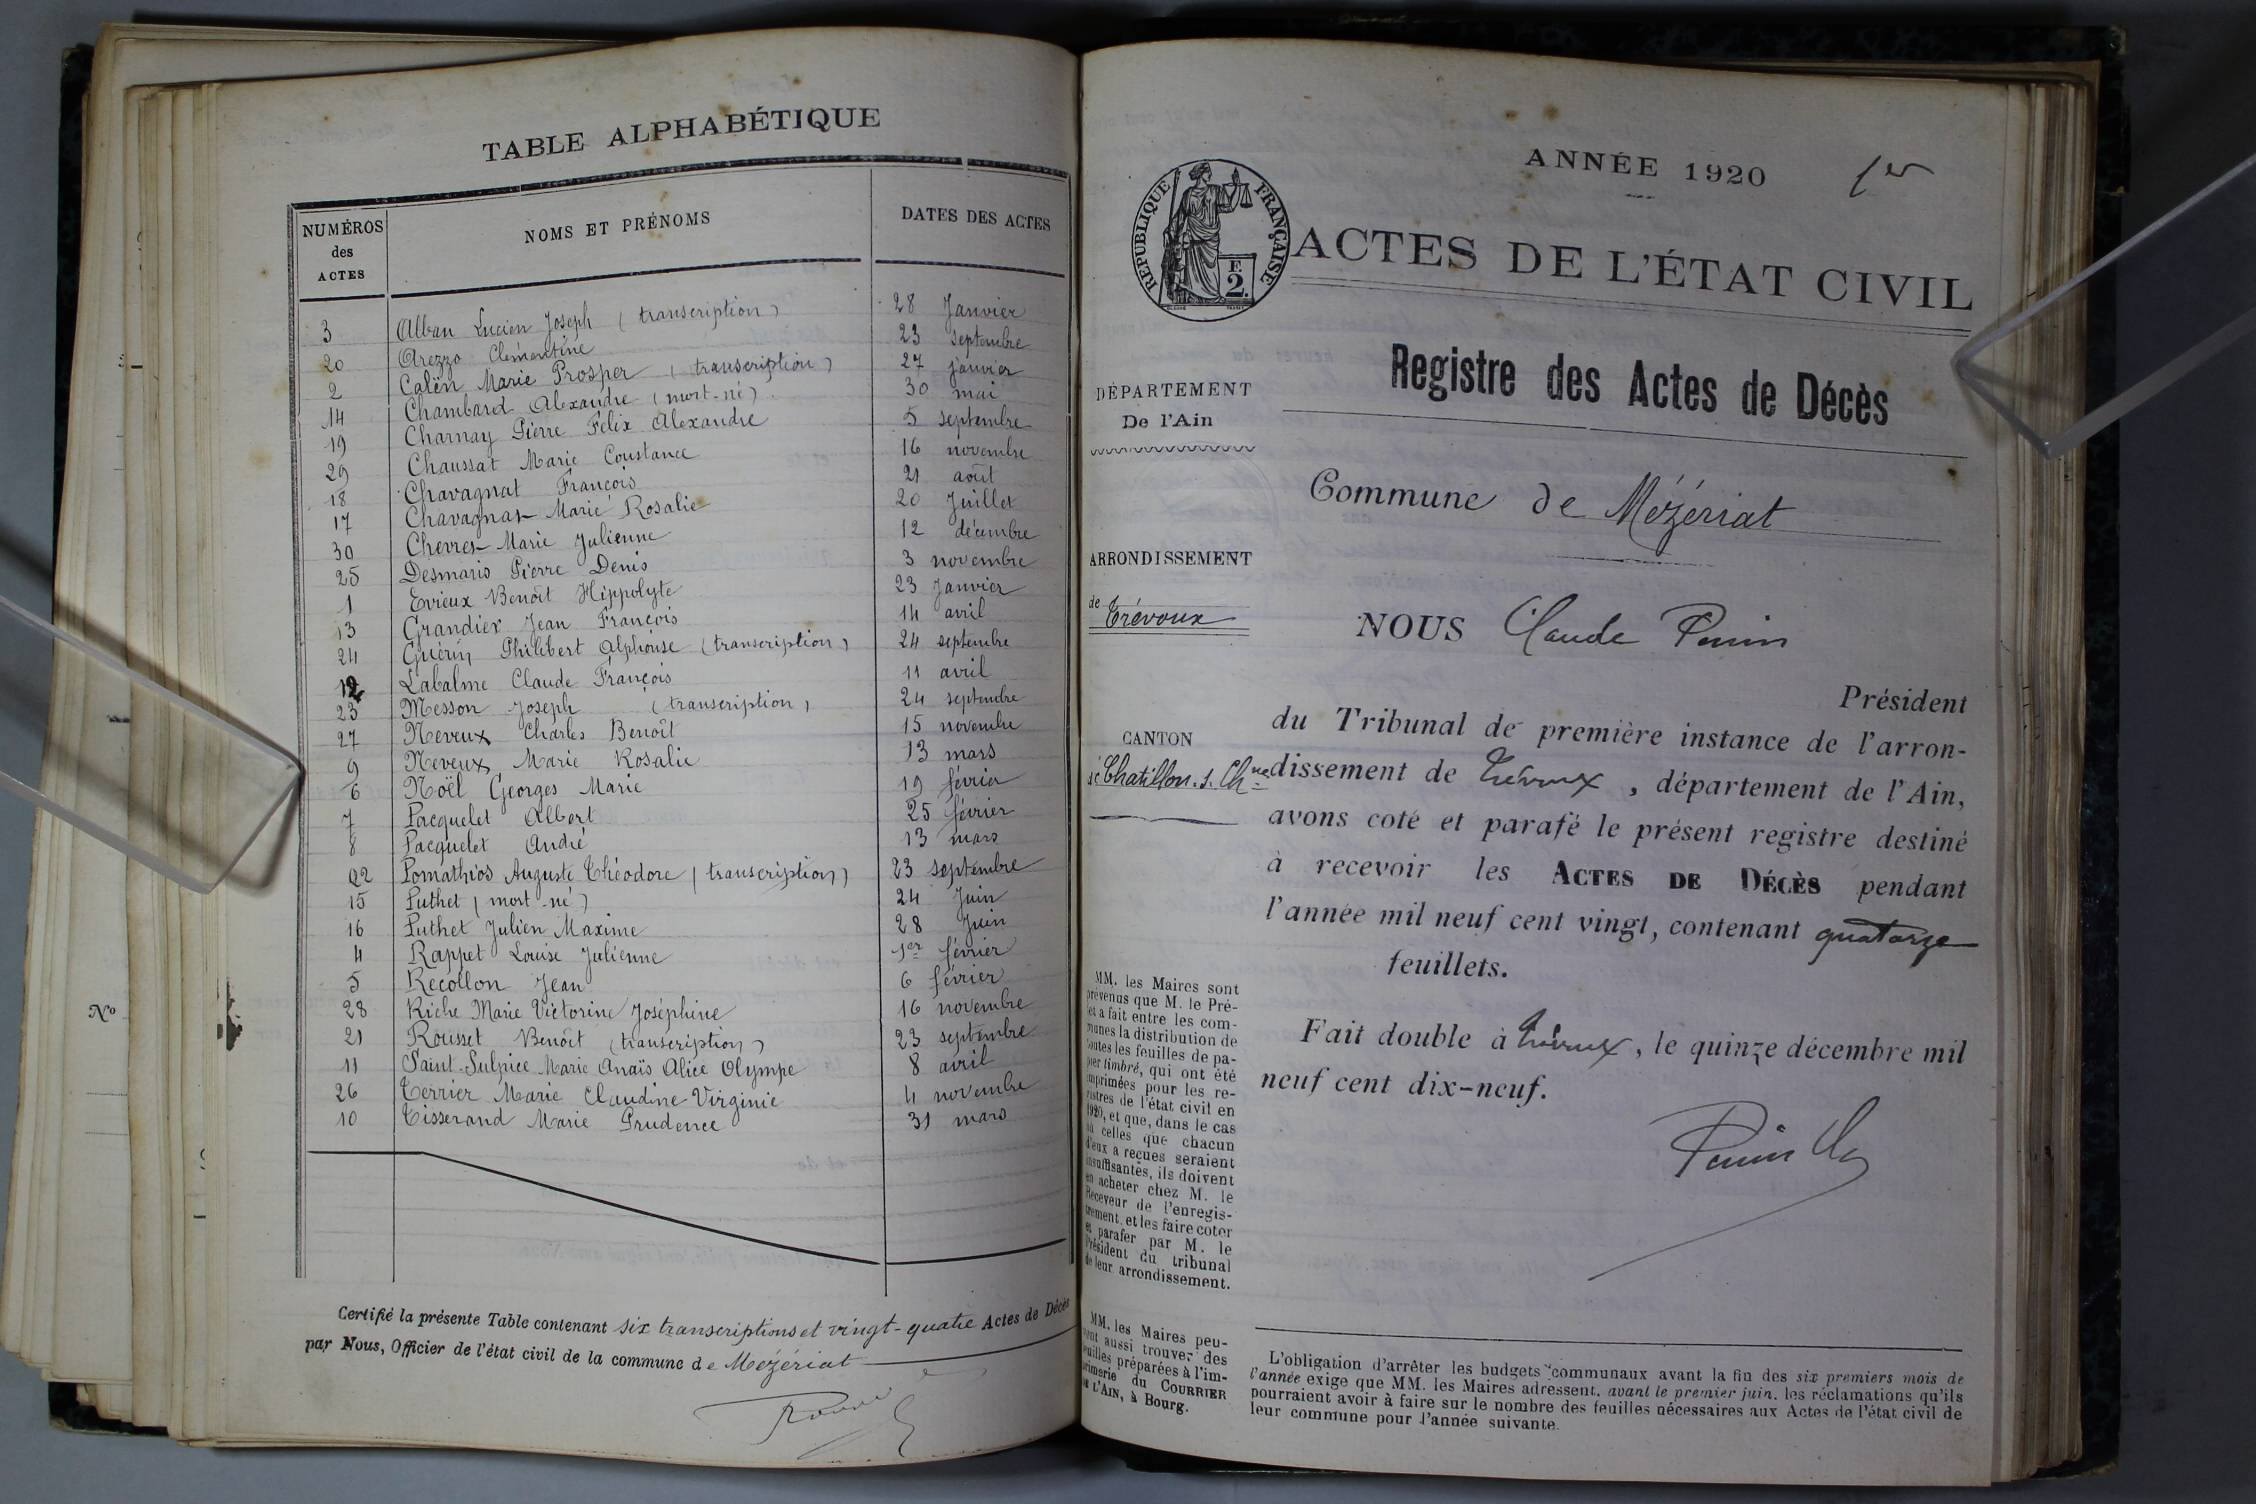 TABLE ALPHABÉTIQUE
NUMÉROS des ACTES NOMS ET PRÉNOMS DATES DES ACTES
3 Alban Lucien Joseph (transcription) 28 Janvier
20 Arezzo Clementine 23 septembre
2 Calën Marie Prosper (transcription) 27 janvier
14 Chambard Alexandre (mort-né) 30 mai
19 Charnay Pierre Felix Alexandre 5 septembre
29 Chaussat Marie Constance 16 novembre
18 Chavagnat François 21 août
17 Chavagnat Marie Rosalie 20 Juillet
30 Chevret Marie Julienne 12 décembre
25 Desmaris Pierre Denis 3 novembre
1 Evieux Benoît Hippolyte 23 Janvier
13 Grandier Jean François 14 avril
24 Guérin Philibert Alphonse (transcription) 24 septembre
12 Labalme Claude François 11 avril
23 Messon Joseph (transcription) 24 septembre
27 Neveux Charles Benoît 15 novembre
9 Neveux Marie Rosalie 13 mars
6 Noël Georges Marie 19 février
7 Pacquelet Albert 25 février
8 Pacquelet André 13 mars
22 Pomathios Auguste Théodore (transcription) 23 septembre
15 Puthet (mort-né) 24 Juin
16 Puthet Julien Maxime 28 Juin
4 Rappet Louise Julienne 1er février
5 Récollon Jean 6 février
28 Riche Marie Victorine Joséphine 16 novembre
21 Rousset Benoît (transcription) 23 septembre
11 Saint-Sulpice Marie Anaïs Alice Olympe 8 avril
26 Terrier Marie Claudine Virginie 4 novembre
10 Tisserand Marie Prudence 31 mars
Certifié la présente Table contenant six transcriptions et vingt-quatre Actes de Décès
par Nous, Officier de l'état civil de la commune de Mézériat
Nº
ANNÉE 1920 1er
RÉPUBLIQUE FRANÇAISE
F.
2.
ACTES DE L'ÉTAT CIVIL
Registre des Actes de Décès
DÉPARTEMENT
De l'Ain
Commune de Mézériat
ARRONDISSEMENT
de Trévoux
NOUS Claude Perrin
Président
du Tribunal de première instance de l'arron-
CANTON
de Chatillon.s.Chne
dissement de Trévoux, département de l'Ain,
avons coté et parafé le présent registre destiné
à recevoir les ACTES DE DÉCÈS pendant
l'année mil neuf cent vingt, contenant quatorze
feuillets.
Fait double à Trévoux, le quinze décembre mil
neuf cent dix-neuf.
Perrin Cl
MM. les Maires sont
prévenus que M. le Pré-
fet a fait entre les com-
munes la distribution de
toutes les feuilles de pa-
pier timbré, qui ont été
imprimées pour les re-
gistres de l'état civil en
1920, et que, dans le cas
où celles que chacun
d'eux a reçues seraient
insuffisantes, ils doivent
en acheter chez M. le
Receveur de l'enregis-
trement, et les faire coter
et parafer par M. le
Président du tribunal
de leur arrondissement.
MM. les Maires peu-
vent aussi trouver des
feuilles préparées à l'im-
primerie du COURRIER
DE L'AIN, à Bourg.
L'obligation d'arrêter les budgets communaux avant la fin des six premiers mois de
l'année exige que MM. les Maires adressent, avant le premier juin, les réclamations qu'ils
pourraient avoir à faire sur le nombre des feuilles nécessaires aux Actes de l'état civil de
leur commune pour l'année suivante.